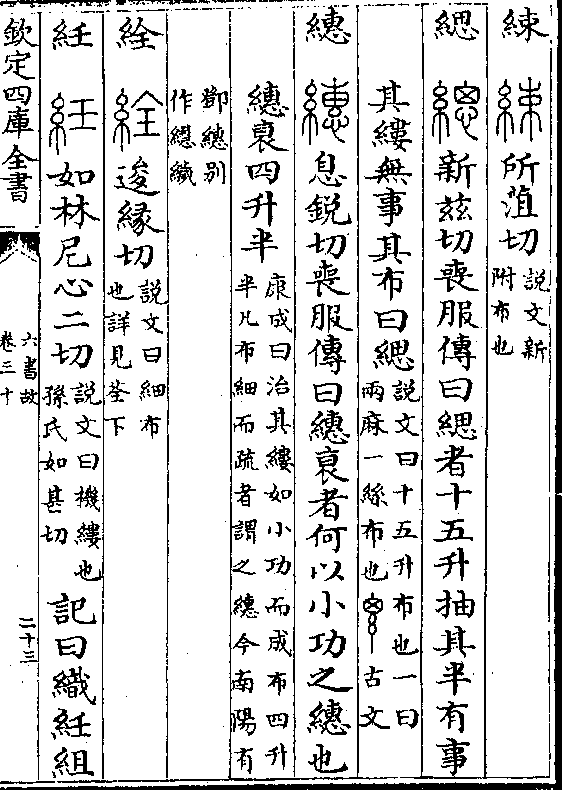 綀 所葅切 說文新
附布也
緦 新茲切喪服傳曰緦者十五升抽其半有事
其縷無事其布曰緦 說文曰十五升布也一曰
兩麻一絲布也 古文
繐 息銳切喪服傳曰繐衰者何以小功之繐也
繐衰四升半 康成曰治其縷如小功而成布四升
半凡布細而疏者謂之繐今南陽有
鄧繐别
作
絟 逡緣切 說文曰細布
也詳見荃下
紝 如林尼心二切 說文曰機縷也
孫氏如甚切 記曰織紝組
欽定四庫全書
六書故
卷三十
二十三